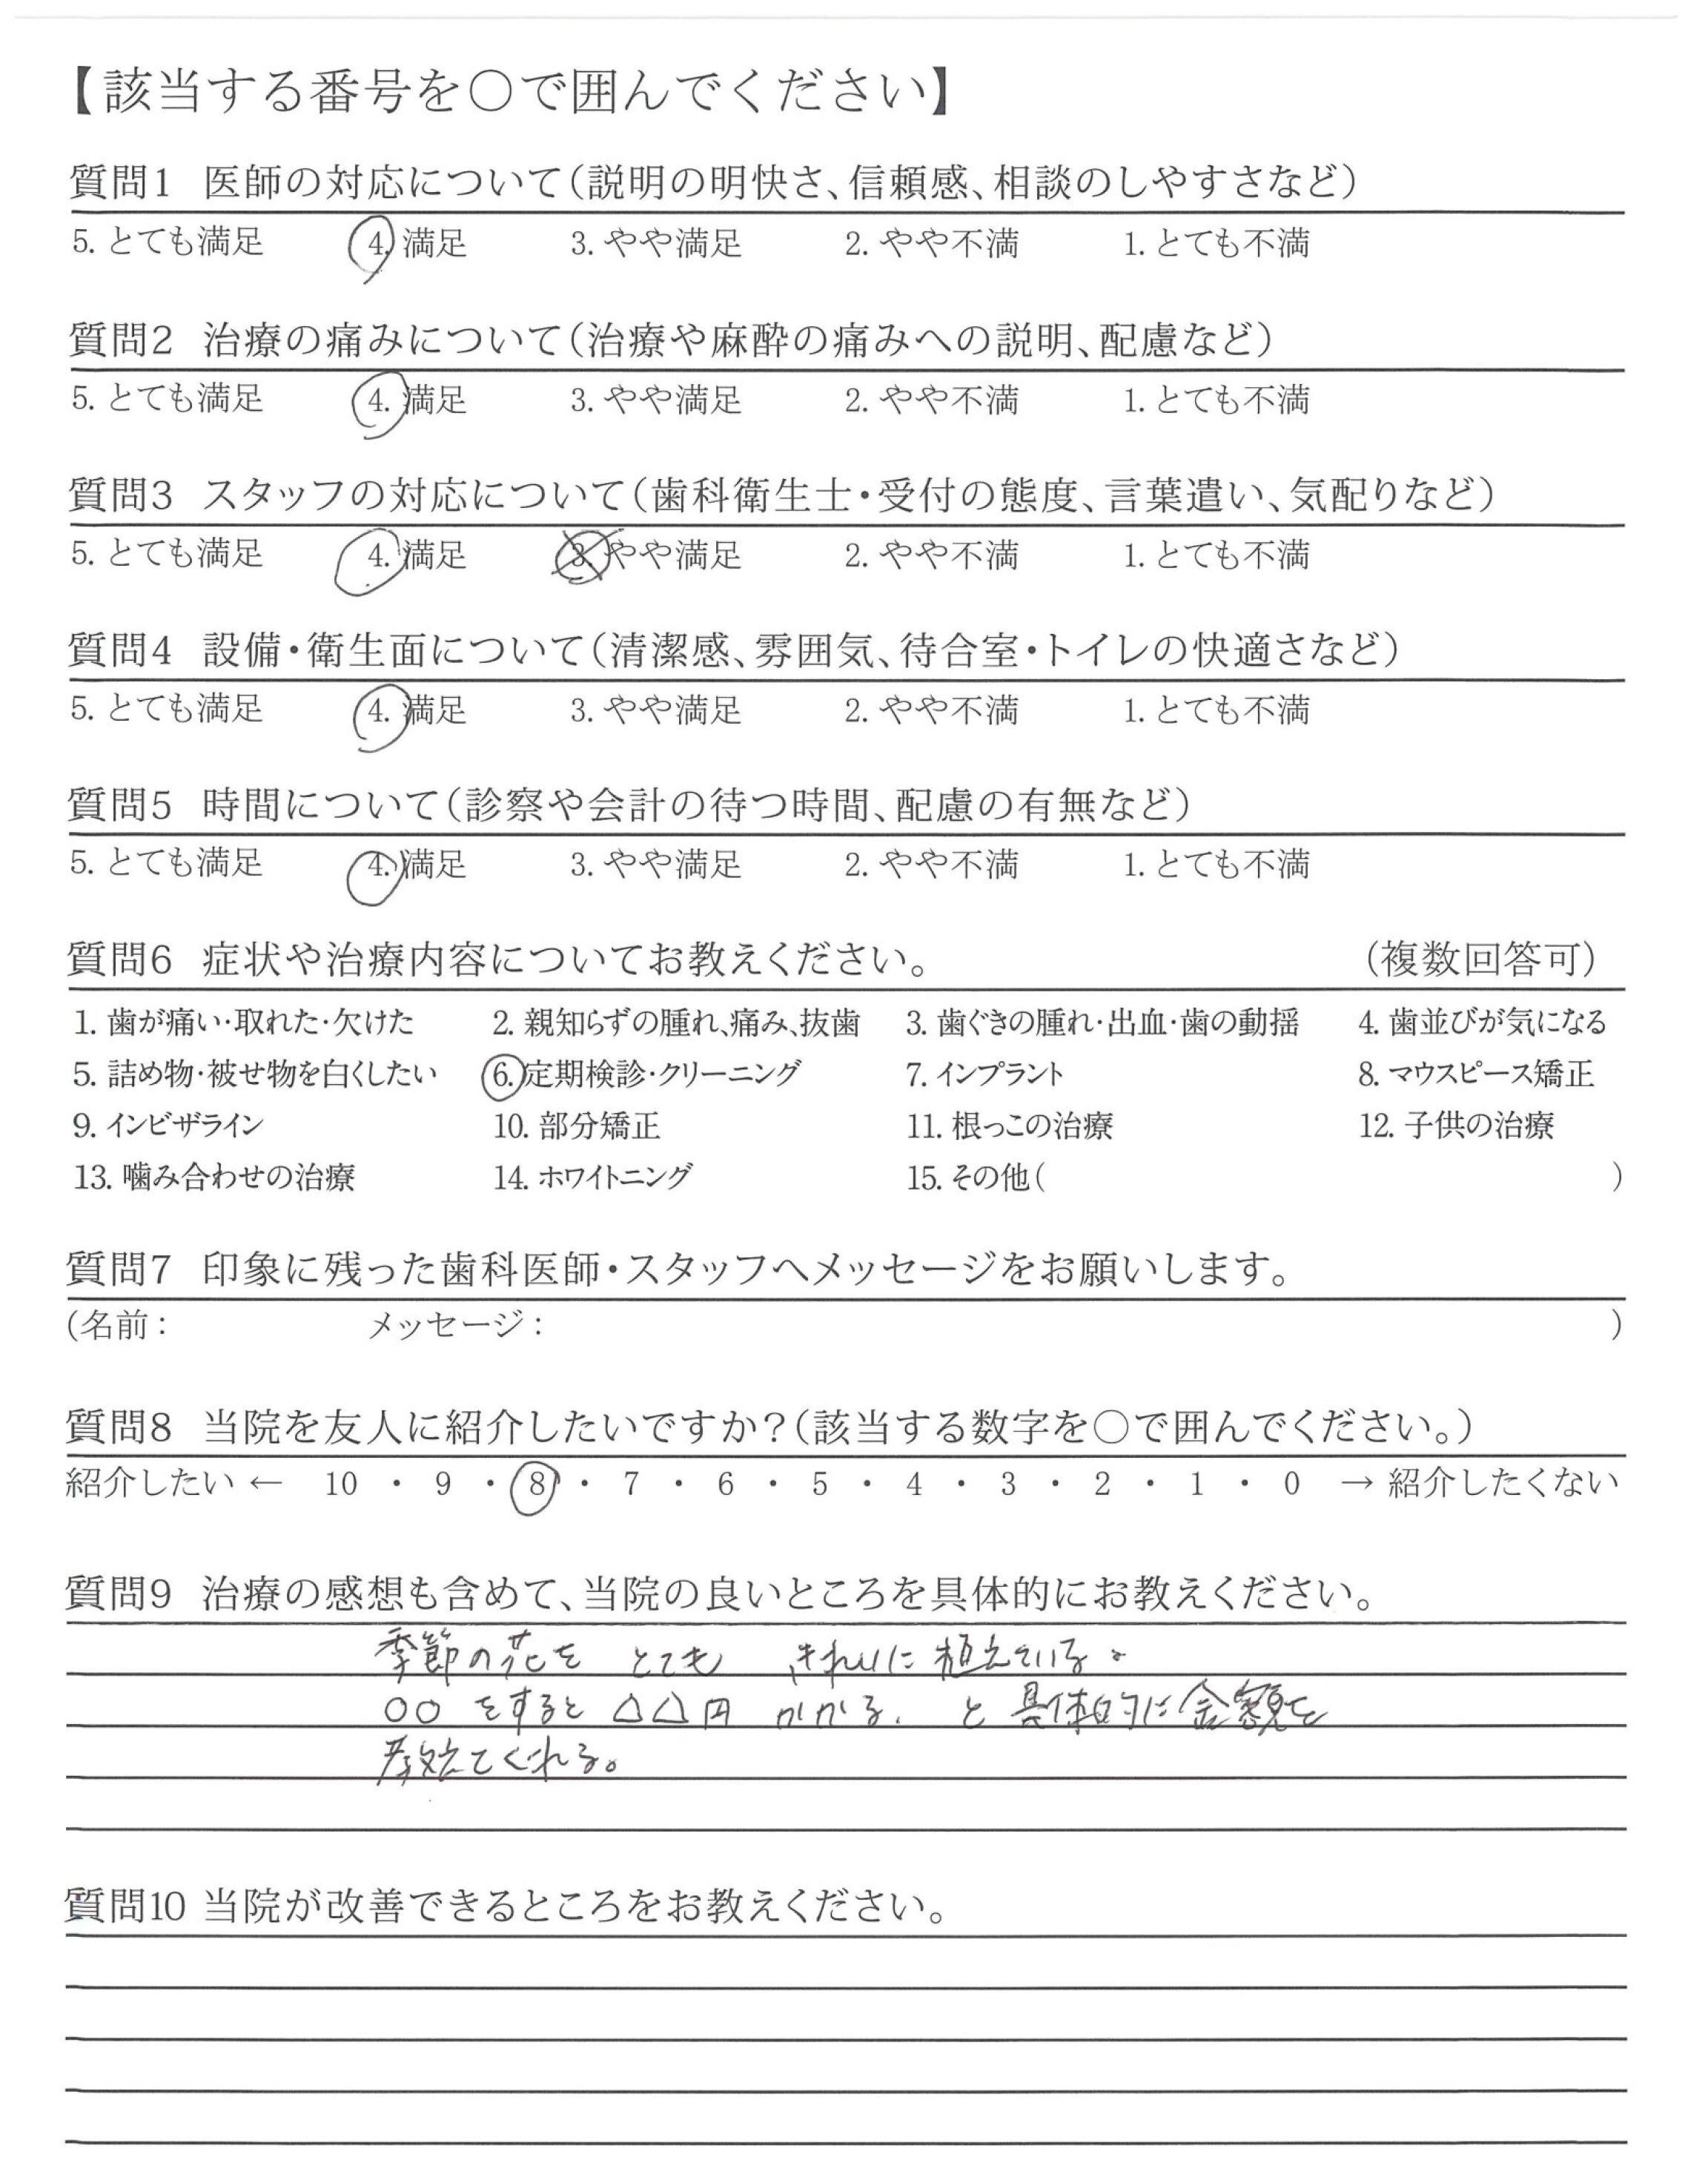 【該当する番号を○で囲んでください】
質問1 医師の対応について(説明の明快さ、信頼感、相談のしやすさなど)
5. とても満足 4. 満足 3. やや満足 2. やや不満 1. とても不満
質問2 治療の痛みについて(治療や麻酔の痛みへの説明、配慮など)
5. とても満足 4. 満足 3. やや満足 2. やや不満 1. とても不満
質問3 スタッフの対応について(歯科衛生士・受付の態度、言葉遣い、気配りなど)
5. とても満足 4. 満足 3. やや満足 2. やや不満 1. とても不満
質問4 設備・衛生面について(清潔感、雰囲気、待合室・トイレの快適さなど)
5. とても満足 4. 満足 3. やや満足 2. やや不満 1. とても不満
質問5 時間について(診察や会計の待つ時間、配慮の有無など)
5. とても満足 4. 満足 3. やや満足 2. やや不満 1. とても不満
質問6 症状や治療内容についてお教えください。 (複数回答可)
1. 歯が痛い・取れた・欠けた 2. 親知らずの腫れ、痛み、抜歯 3. 歯ぐきの腫れ・出血・歯の動揺 4. 歯並びが気になる
5. 詰め物・被せ物を白くしたい 6. 定期検診・クリーニング 7. インプラント 8. マウスピース矯正
9. インビザライン 10. 部分矯正 11. 根っこの治療 12. 子供の治療
13. 噛み合わせの治療 14. ホワイトニング 15. その他( )
質問7 印象に残った歯科医師・スタッフへメッセージをお願いします。
(名前: メッセージ: )
質問8 当院を友人に紹介したいですか?(該当する数字を○で囲んでください。)
紹介したい ← 10 ・ 9 ・ 8 ・ 7 ・ 6 ・ 5 ・ 4 ・ 3 ・ 2 ・ 1 ・ 0 → 紹介したくない
質問9 治療の感想も含めて、当院の良いところを具体的にお教えください。
季節の花を とても きれいに植えている。
○○をすると △△円 かかる. と具体的に金額を
教えてくれる。
質問10 当院が改善できるところをお教えください。